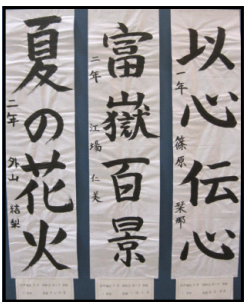 以心伝心
一年 篠原 栞那
富嶽百景
二年 江場 仁美
夏の花火
二年 外山 結梨